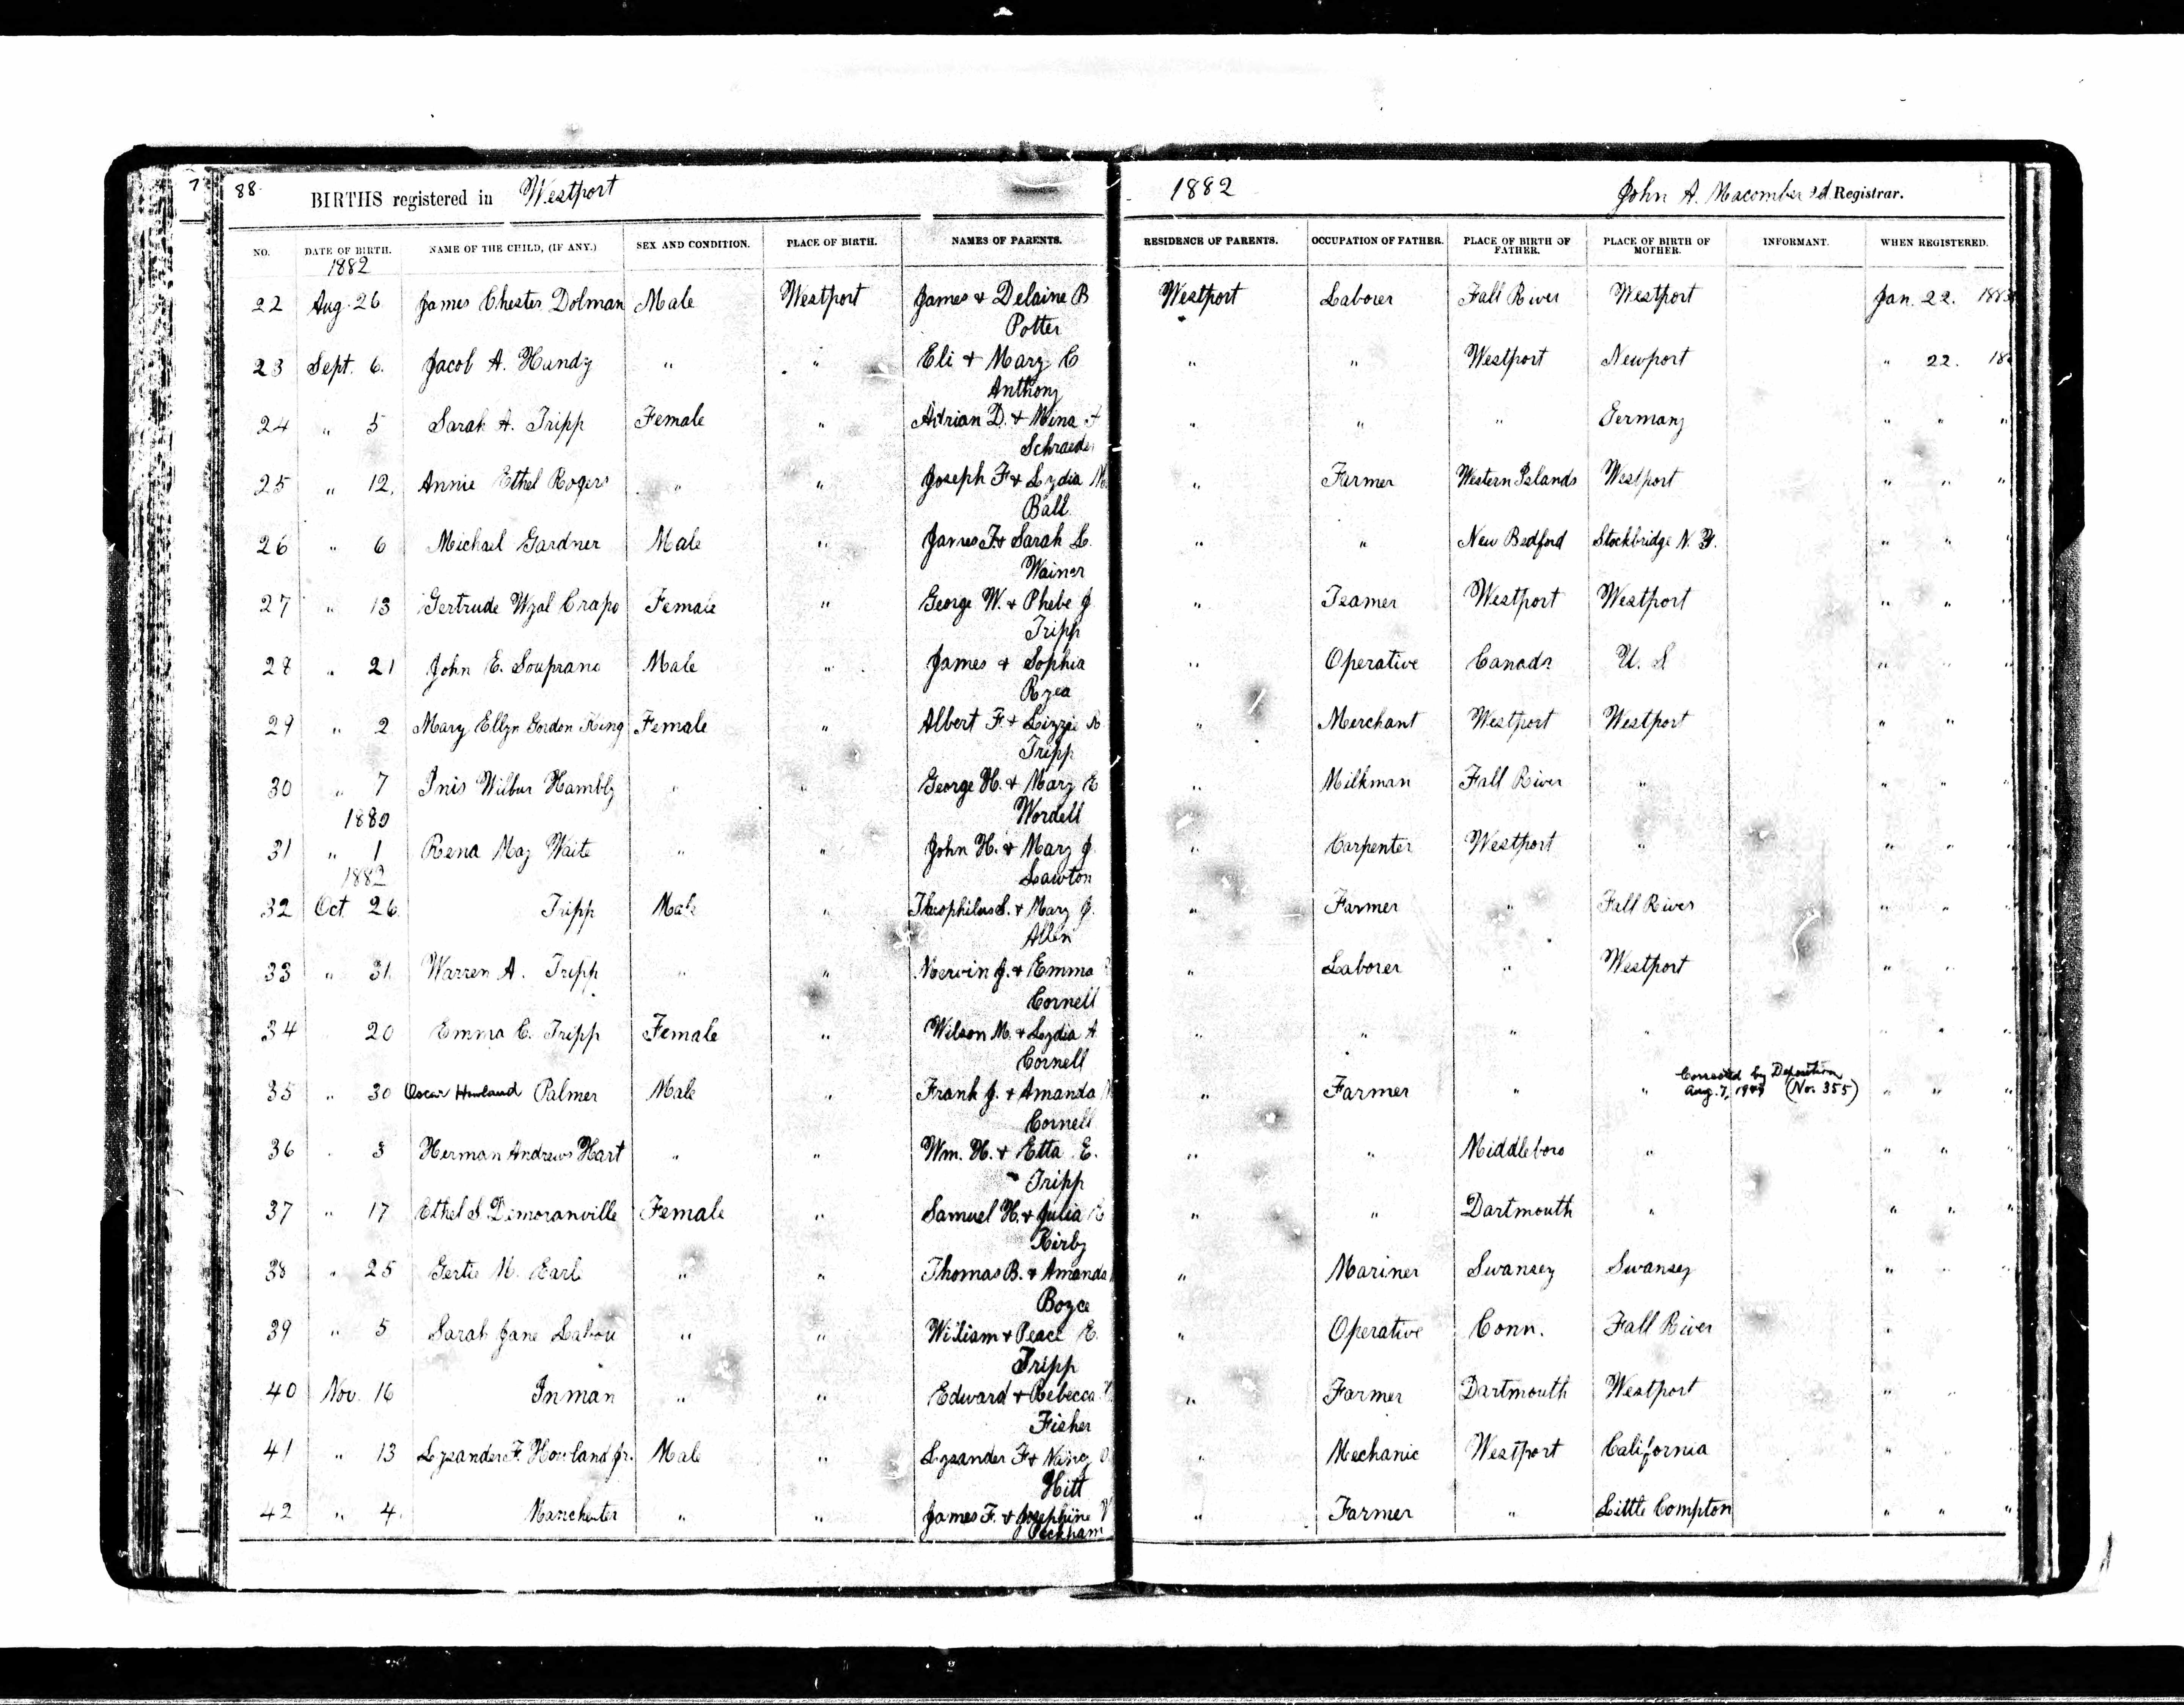 7
88. BIRTHS registered in Westport 1882 John A. Macomber 2d Registrar.
NO. DATE OF BIRTH. NAME OF THE CHILD, (IF ANY.) SEX AND CONDITION. PLACE OF BIRTH. NAMES OF PARENTS. RESIDENCE OF PARENTS. OCCUPATION OF FATHER. PLACE OF BIRTH OF FATHER. PLACE OF BIRTH OF MOTHER. INFORMANT. WHEN REGISTERED.
1882
22 Aug. 26 James Chester Dolman Male Westport James & Delaine B Westport Laborer Fall River Westport Jan. 22. 188
Potter
23 Sept. 6. Jacob A. Handy " " Eli & Mary C " " Westport Newport " 22. 18
Anthony
24 " 5 Sarah A. Tripp Female " Adrian D. & Mina F " " " Germany " " "
Schraeder
25 " 12. Annie Ethel Rogers " " Joseph F & Lydia M " Farmer Western Islands Westport " " "
Ball
26 " 6 Michael Gardner Male " James F. & Sarah L. " " New Bedford Stockbridge N. Y. " " "
Wainer
27 " 13 Gertrude Wyal Crapo Female " George W. & Phebe J " Teamer Westport Westport " " "
Tripp
28 " 21 John E. Souprano Male " James & Sophia " Operative Canada U. S " " "
Ryea
29 " 2 Mary Ellyn Gordon King Female " Albert F. & Lizzie " Merchant Westport Westport " "
Tripp
30 " 7 Inis Wilbur Hambly " " George H. & Mary E " Milkman Fall River " " " "
1880 Wordell
31 " 1 Rena May Waite " " John H. & Mary J. " Carpenter Westport " " " "
1882 Lawton
32 Oct. 26. Tripp Male " Theophilus S. & Mary J. " Farmer " Fall River " " "
Allen
33 " 31. Warren A. Tripp " " Mervin J. & Emma " Laborer " Westport " " "
Cornell
34 20 Emma C. Tripp Female " Wilson M. & Lydia A " " " " " " "
Cornell Corrected by Deposition
35 " 30 Oscar Howland Palmer Male " Frank J. & Amanda " Farmer " " Aug. 7, (No. 355) " " "
Cornell
36 " 3 Herman Andrews Hart " " Wm. H. & Etta E. " " Middleboro " " " "
Tripp
37 " 17 Ethel S Demoranville Female " Samuel H. & Julia " " Dartmouth " " " "
Kirby
38 " 25 Gertie M. Earl " " Thomas B. & Amanda " Mariner Swansey Swansey " " "
Boyce
39 " 5 Sarah Jane Labou " " William & Peace E. " Operative Conn. Fall River "
Tripp
40 Nov. 16 Inman " " Edward & Rebecca " Farmer Dartmouth Westport " "
Fisher
41 " 13 Lysander F. Howland Jr. Male " Lysander F & Nancy " Mechanic Westport California " "
Hitt
42 " 4. Manchester " " James F. & Josephine " Farmer " Little Compton " " "
Peckham